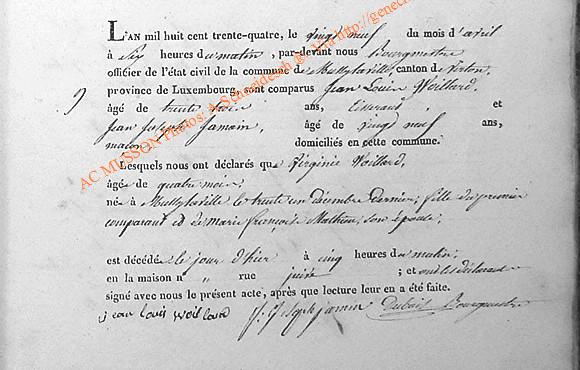 L'AN mil huit cent trente-quatre, le vingt neuf du mois d'avril
à six heures du matin, par-devant nous Bourgmestre
officier de l'état civil de la commune de Mussy la ville, canton de Virton,
province de Luxembourg, sont comparus Jean Louis Woillard,
9
âgé de trente trois ans, et
Jean Joseph Jamin, âgé de vingt neuf ans,
maçon, domiciliés en cette commune.
Lesquels nous ont déclarés que Virginie Woillard,
âgée de quatre mois,
née à Mussy la ville le trente un décembre dernier; fille du premier
comparant et de Marie françoise Mathieu, son épouse,
est décédée le jour d'hier à cinq heures du matin,
en la maison n° „ rue ; et ont les déclarans
signé avec nous le présent acte, après que lecture leur en a été faite.
jean louis woillard J. Joseph jamin Bourgmestre
AC MUSSON Photos: A Schneidesch @ via http://genec